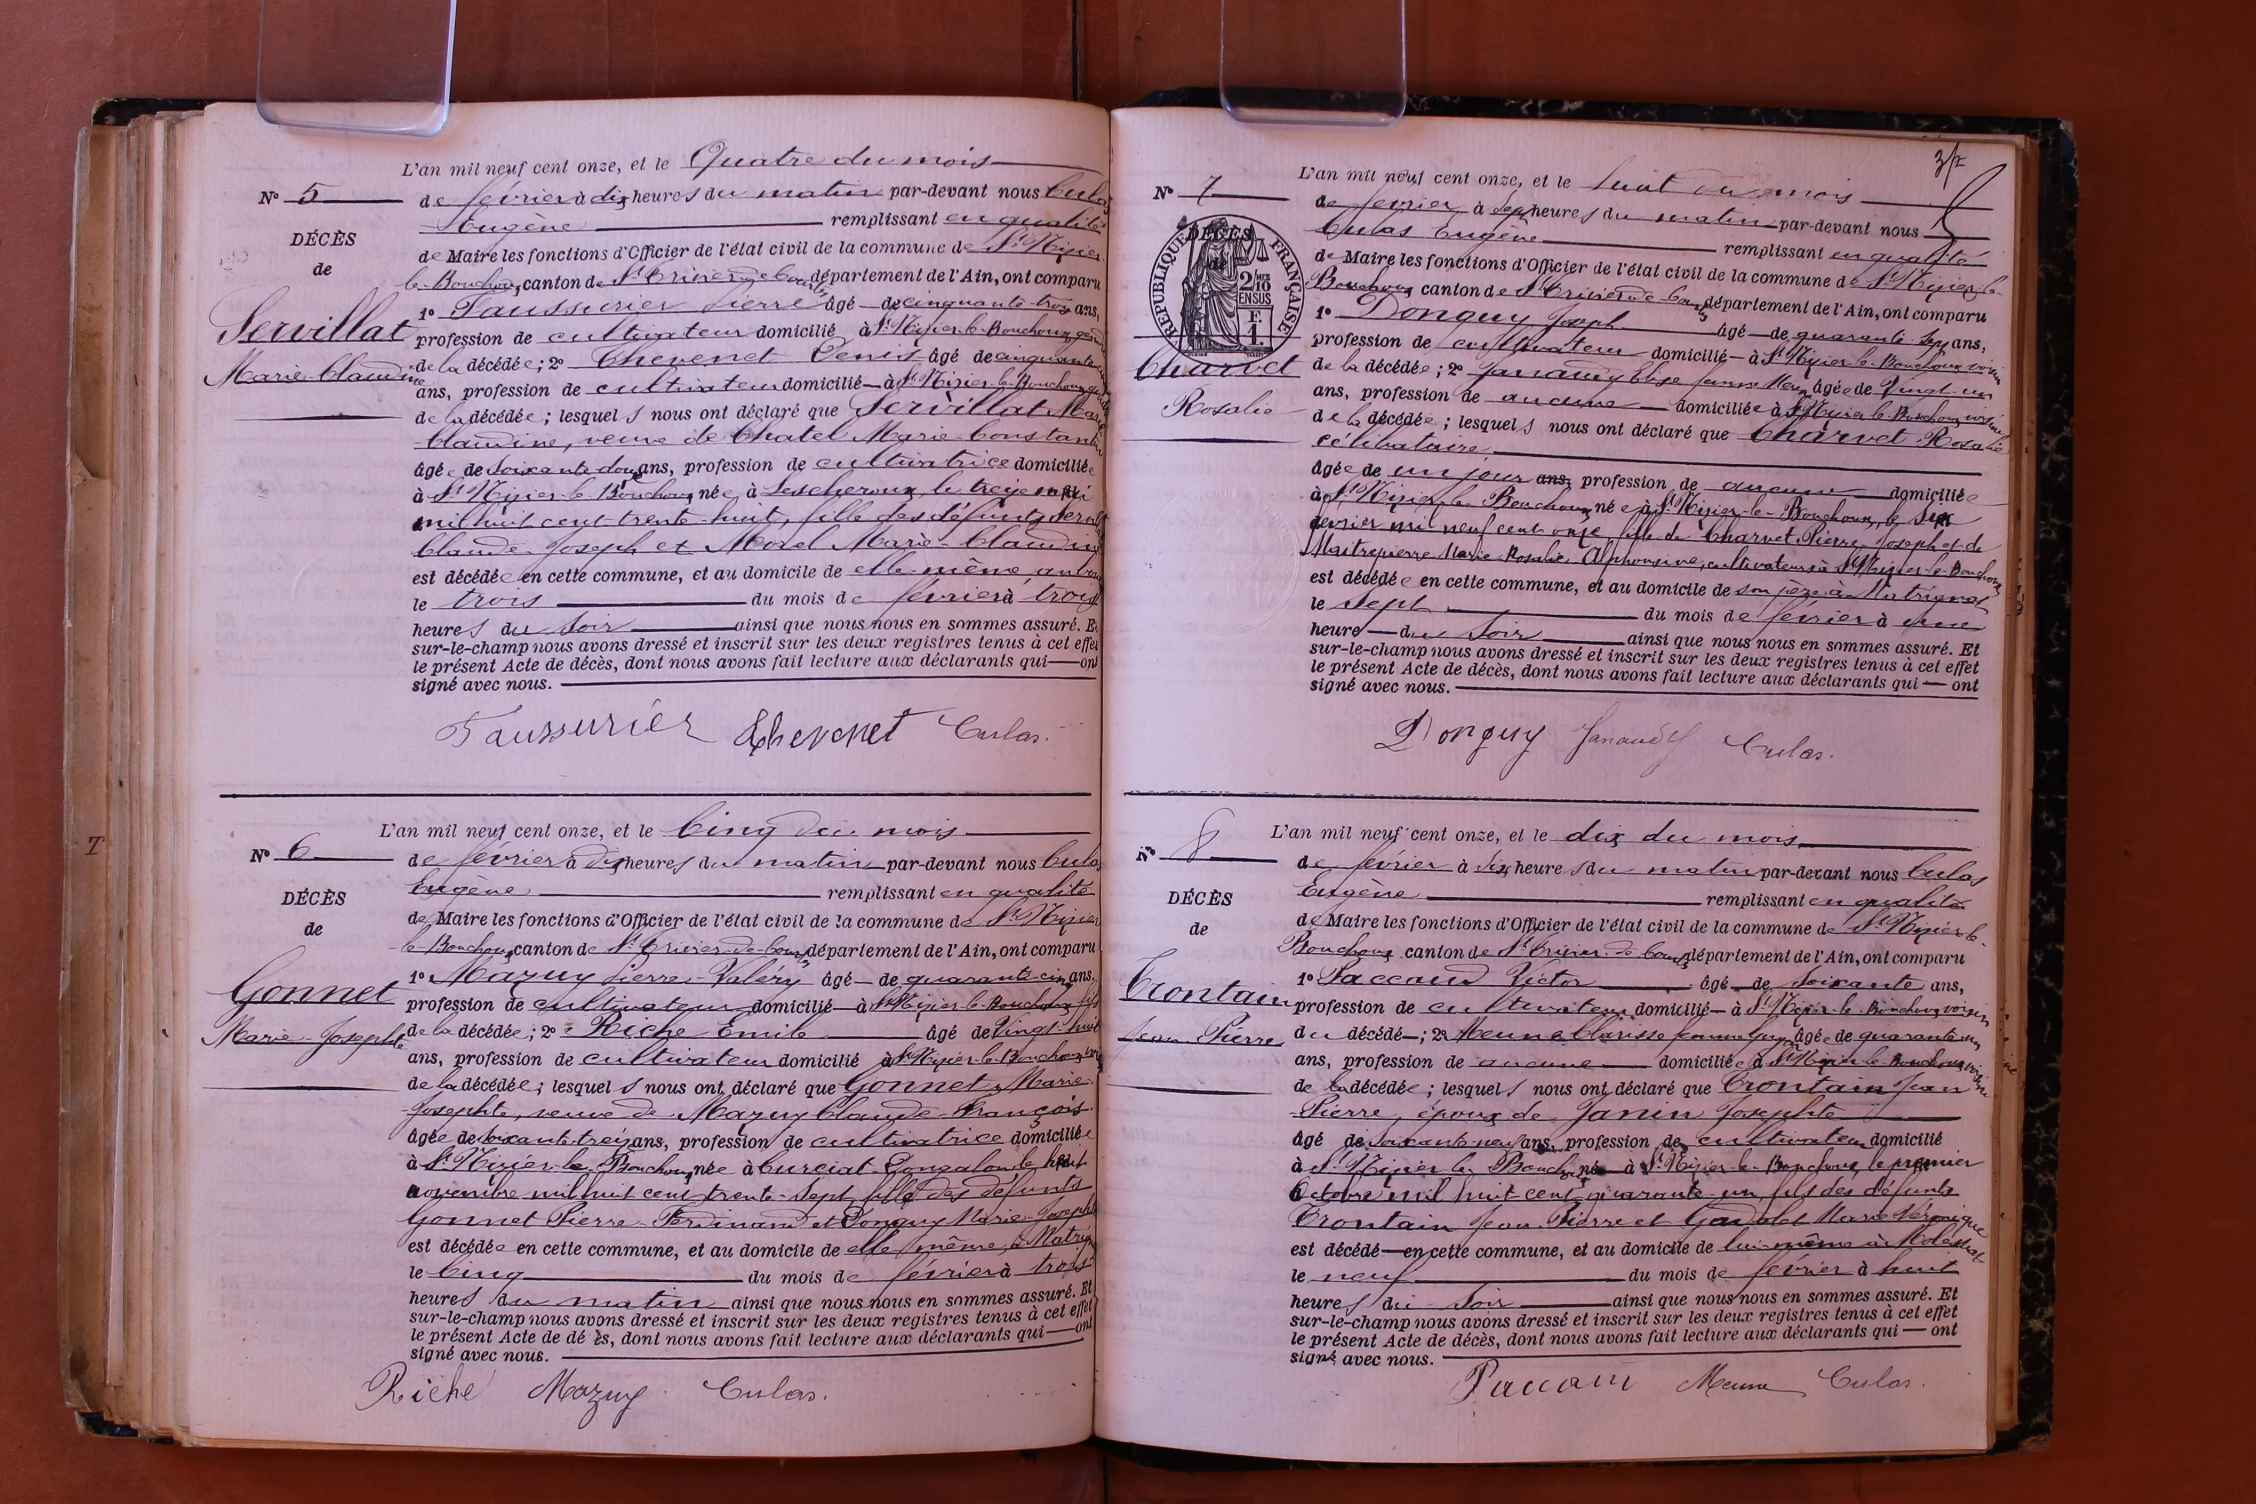 L'an mil neuf cent onze, et le Quatre du mois
N° 5
de février à dix heures du matin par-devant nous Culas
Eugène remplissant en qualité
DÉCÈS
de Maire les fonctions d'Officier de l'état civil de la commune de St Nizier
de
le-Bouchoux, canton de St Trivier-de-Courtes département de l'Ain, ont comparu
1° Taussurier Pierre âgé de cinquante-trois ans,
Servillat
profession de cultivateur domicilié à St Nizier-le-Bouchoux, gendre
Marie-Claudine
de la décédée ; 2° Chevenet Denis âgé de cinquante
ans, profession de cultivateur domicilié à St Nizier-le-Bouchoux
de la décédée ; lesquels nous ont déclaré que Servillat Marie
Claudine, veuve de Chatel Marie-Constantin
âgée de soixante-douze ans, profession de cultivatrice domiciliée
à St Nizier-le-Bouchoux, née à Lescheroux, le treize mai
mil huit cent trente-huit, fille des défunts
Claude-Joseph et Morel Marie-Claudine
est décédée en cette commune, et au domicile de elle-même,
le trois du mois de février à trois
heures du soir ainsi que nous nous en sommes assuré. Et
sur-le-champ nous avons dressé et inscrit sur les deux registres tenus à cet effet
le présent Acte de décès, dont nous avons fait lecture aux déclarants qui ont
signé avec nous.
Taussurier Chevenet Culas.
L'an mil neuf cent onze, et le Cinq du mois
N° 6
de février à dix heures du matin par-devant nous Culas
Eugène remplissant en qualité
DÉCÈS
de Maire les fonctions d'Officier de l'état civil de la commune de St Nizier
de
le-Bouchoux, canton de St Trivier-de-Courtes département de l'Ain, ont comparu
1° Mazuy Pierre-Valéry âgé de quarante-cinq ans,
Gonnet
profession de cultivateur domicilié à St Nizier-le-Bouchoux fils
Marie-Josephte
de la décédée ; 2° Riche Emile âgé de Vingt-huit
ans, profession de cultivateur domicilié à St Nizier-le-Bouchoux
de la décédée ; lesquels nous ont déclaré que Gonnet Marie-
Josephte, veuve de Mazuy Claude-François
âgée de soixante-treize ans, profession de cultivatrice domiciliée
à St Nizier-le-Bouchoux, née à Curciat-Dongalon le huit
novembre mil huit cent trente-sept, fille des défunts
Gonnet Pierre-Ferdinand et Donguy Marie-Josephte
est décédée en cette commune, et au domicile de elle-même, à
le Cinq du mois de février à trois
heures du matin ainsi que nous nous en sommes assuré. Et
sur-le-champ nous avons dressé et inscrit sur les deux registres tenus à cet effet
le présent Acte de dé ès, dont nous avons fait lecture aux déclarants qui ont
signé avec nous.
Riche Mazuy Culas.
L'an mil neuf cent onze, et le huit du mois
N° 7
de février à sept heures du matin par-devant nous
Culas Eugène remplissant en qualité
DÉCÈS
RÉPUBLIQUE FRANÇAISE
2/10 EN SUS
F. 1.
de Maire les fonctions d'Officier de l'état civil de la commune de St Nizier-le-
Bouchoux canton de St Trivier-de-Courtes département de l'Ain, ont comparu
1° Donguy Joseph âgé de quarante-sept ans,
profession de cultivateur domicilié à St Nizier-le-Bouchoux voisin
Charvet
de la décédée ; 2° Janaudy Elise femme âgée de Vingt-un
Rosalie
ans, profession de aucune domiciliée à St Nizier-le-Bouchoux voisine
de la décédée ; lesquels nous ont déclaré que Charvet Rosalie
célibataire
âgée de un jour ans, profession de aucune domiciliée
à St Nizier-le-Bouchoux, née à St Nizier-le-Bouchoux, le six
février mil neuf cent onze, fille de Charvet Pierre-Joseph et de
Maitrepierre Marie-Rosalie-Alphonsine, cultivateurs à St Nizier-le-Bouchoux
est décédée en cette commune, et au domicile de son père à
le Sept du mois de février à une
heure du soir ainsi que nous nous en sommes assuré. Et
sur-le-champ nous avons dressé et inscrit sur les deux registres tenus à cet effet
le présent Acte de décès, dont nous avons fait lecture aux déclarants qui ont
signé avec nous.
Donguy Janaudy Culas.
L'an mil neuf cent onze, et le dix du mois
N° 8
de février à dix heures du matin par-devant nous Culas
Eugène remplissant en qualité
DÉCÈS
de Maire les fonctions d'Officier de l'état civil de la commune de St Nizier-le-
de
Bouchoux canton de St Trivier-de-Courtes département de l'Ain, ont comparu
1° Paccaud Victor âgé de soixante ans,
Trontain
profession de cultivateur domicilié à St Nizier-le-Bouchoux voisin
Jean-Pierre
du décédé ; 2° Meunier Clarisse femme âgée de quarante-un
ans, profession de aucune domiciliée à St Nizier-le-Bouchoux voisine
de la décédée ; lesquels nous ont déclaré que Trontain Jean
Pierre, époux de Janin Josephte
âgé de soixante-neuf ans, profession de cultivateur domicilié
à St Nizier-le-Bouchoux né à St Nizier-le-Bouchoux, le premier
Octobre mil huit cent quarante-un, fils des défunts
Trontain Jean-Pierre et Marie Véronique
est décédé en cette commune, et au domicile de lui-même à
le neuf du mois de février à huit
heures du soir ainsi que nous nous en sommes assuré. Et
sur-le-champ nous avons dressé et inscrit sur les deux registres tenus à cet effet
le présent Acte de décès, dont nous avons fait lecture aux déclarants qui ont
signé avec nous.
Paccaud Culas.